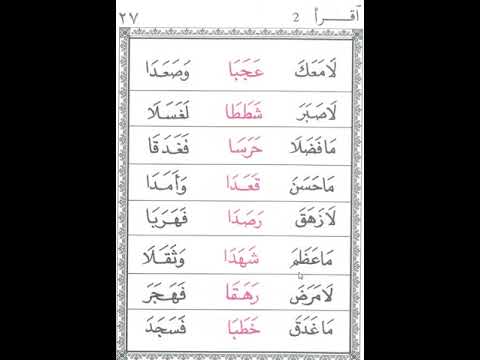 اَقْـــرَأْ 2 ٢٧
لَا مَعَكَ عَجَبَا وَصَعَدَا
لَا صَبَرَ شَطَطَا لَغَسَلَا
مَا فَضَلَا حَرَسَا فَغَدَقَا
مَا حَسَنَ قَعَدَا وَأَمَدَا
لَا زَهَقَ رَصَدَا فَهَرَبَا
مَا عَظَمَ شَهَدَا وَثَقَلَا
لَا مَرَضَ رَهَقَا فَهَجَرَ
مَا غَدَقَ خَطَبَا فَسَجَدَ